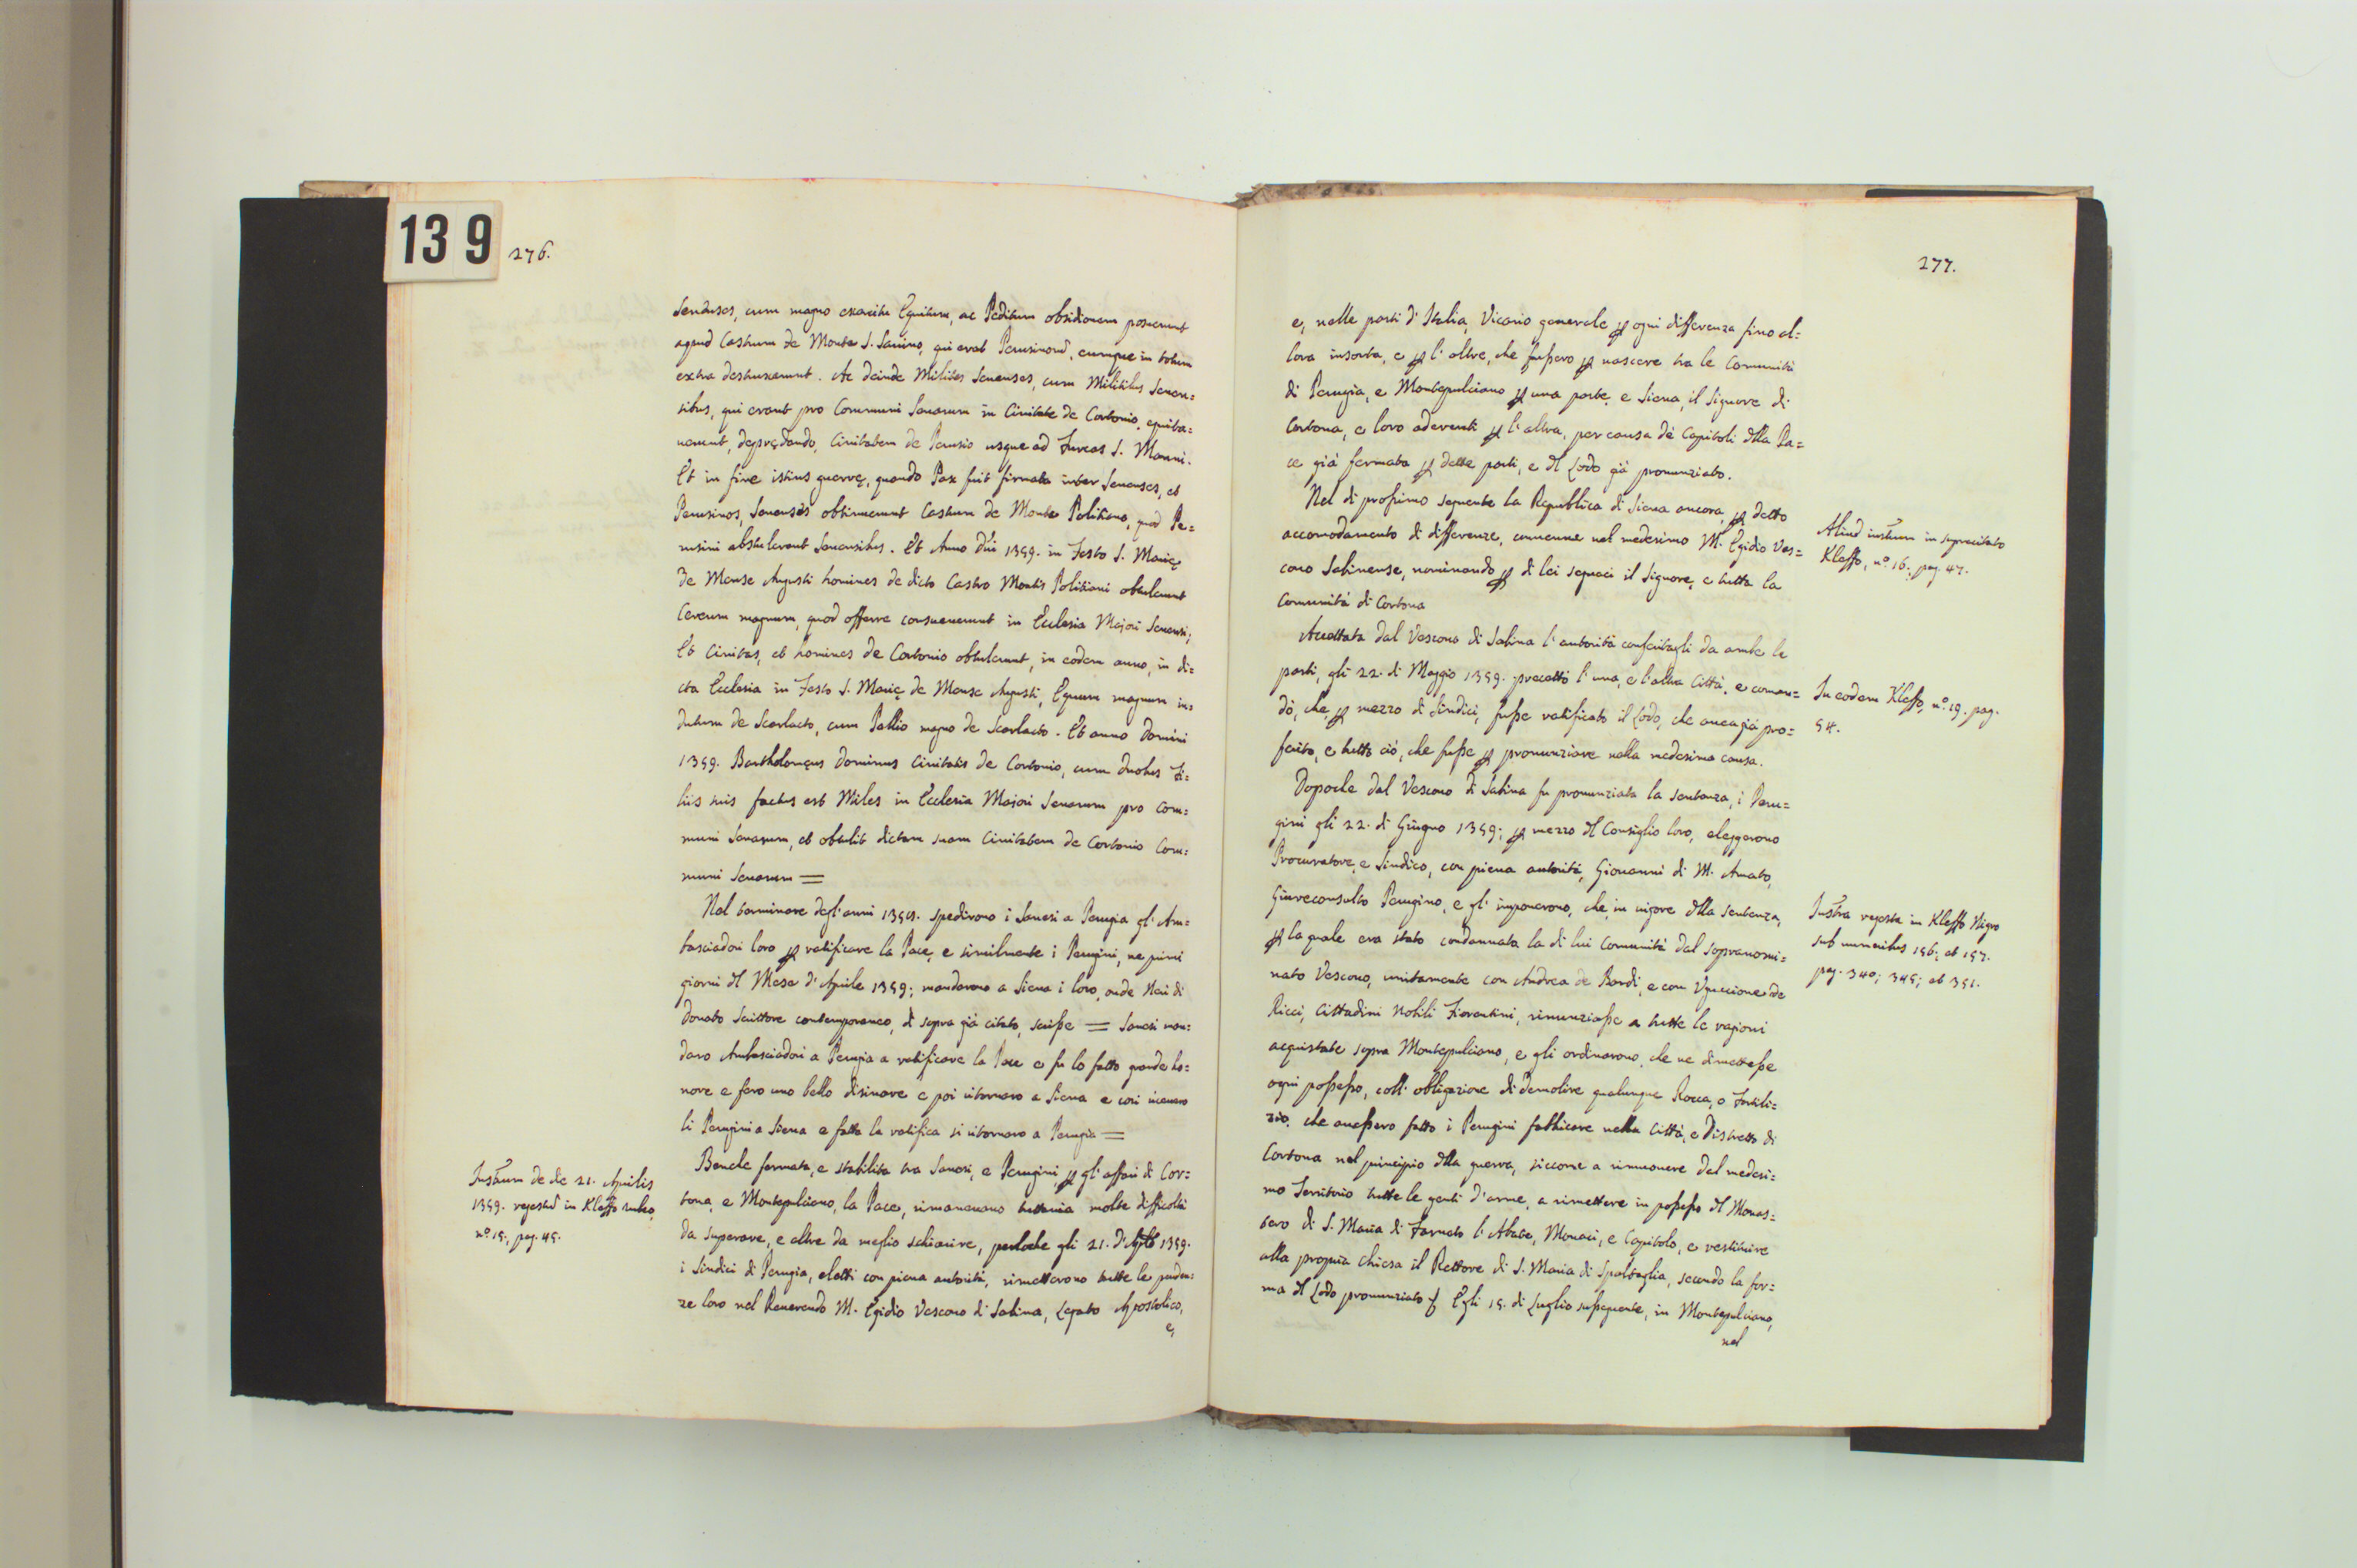 139
276.
Senenses, cum magno exercitu Equitum, ac Peditum obsidionem posuerunt
apud Castrum de Monte S. Savino, qui erat Perusinorũ, eumque in totum
extra destruxerunt. Ac deinde Milites Senenses, cum Militibus Senen=
sibus, qui erant pro Communi Senarum in Civitate de Cortonio, equita=
uerunt, deprędando, Civitatem de Perusio usque ad Furcas S. Manni.
Et in fine istius guerrę, quando Pax fuit firmata inter Senenses, et
Perusinos, Senenses obtinuerunt Castrum de Monte Politiano, quod Pe=
rusini abstulerant Senensibus. Et Anno Dñi 1359. in Festo S. Marię
de Mense Augusti homines de dicto Castro Montis Politiani obtulerunt
Cereum magnum, quod offerre consueuerunt in Ecclesia Majori Senensi;
Et Civitas, et homines de Cortonio obtulerunt, in eodem anno, in di=
cta Ecclesia in Festo S. Marię de Mense Augusti, Equum magnum in=
dutum de Scarlacto, cum Pallio magno de Scarlacto. Et anno Domini
1359. Bartholomęus Dominus Civitatis de Cortonio, cum duobus Fi=
liis suis factus est Miles in Ecclesia Majori Senarum pro Com=
muni Senarum, et obtulit dictam suam Civitatem de Cortonio Com=
muni Senarum =
Nel terminare degl'anni 1358. spedirono i Sanesi a Perugia gl' Am=
basciadori loro ꝑ ratificare la Pace, e similmente i Perugini, ne primi
giorni dl Mese d' Aprile 1359; mandarono a Siena i loro, onde Neri di
Donato Scrittore contemporaneo, di sopra già citato, scriße = Sanesi man=
daro Ambasciadori a Perugia a ratificare la Pace e fu lo fatto grande ho=
nore e fero uno bello disinare e poi ritornaro a Siena e così vicennero
li Perugini a Siena e fatta la ratifica si ritornaro a Perugia =
Benche fermata, e stabilita tra Sanesi, e Perugini ꝑ gl' affari di Cor=
tona, e Montepulciano, la Pace, rimaneuano tuttauia molte difficoltà
da superare, e altre da meglio schiarire, perloche gli 21. d'Aple 1359.
i Sindici di Perugia, eletti con piena autorità, rimetterono tutte le puden=
ze loro nel Reuerendo M. Egidio Vescouo di Sabina, Legato Apostolico,
e,
Instrum de die 21. Aprilis
1359. regestũ in Kleffo rubeo,
nº. 15., pag. 45.
277.
e, nelle parti d' Italia, Vicario generale ꝑ ogni differenza fino al=
lora insorta, e ꝑ l' altre, che fußero ꝑ nascere tra le Comunità
di Perugia, e Montepulciano ꝑ una parte, e Siena, il Signore di
Cortona, e loro aderenti ꝑ l' altra, per causa dè Capitoli dlla Pa=
ce già fermata ꝑ dette parti, e dl Lodo già pronunziato.
Nel dì proßimo seguente la Republica di Siena ancora, ꝑ detto
accomodamento di differenze, conuenne nel medesimo M. Egidio Ves=
couo Sabinense, nominando ꝑ di lei seguaci il Signore, e tutta la
Comunità di Cortona
Accettata dal Vescouo di Sabina l' autorità conferitagli da ambe le
parti, gli 22. di Maggio 1359. precettò l' una, e l'altra Città, e coman=
dò, che, ꝑ mezzo di Sindici, fuße ratificato il Lodo, che auea già pro=
ferito, e tutto ciò, che fuße ꝑ pronunziare nella medesima causa.
Dopoche dal Vescouo di Sabina fu pronunziata la sentenza, i Peru=
gini gli 22. di Giugno 1359; ꝑ mezzo dl Consiglio loro, eleggerono
Procuratore, e Sindico, con piena autorità, Giouanni di M. Amato,
Giureconsulto Perugino, e gl' imponerono, che, in uigore dlla sentenza,
ꝑ la quale era stata condannata la di lui Comunità dal sopranomi=
nato Vescouo, unitamente con Andrea de Bardi, e con Uguccione de
Ricci, Cittadini Nobili Fiorentini, rinunziaße a tutte le ragioni
acquistate sopra Montepulciano, e gli ordinarono, che ne dimetteße
ogni poßeßo, coll' obligazione di demolire qualunque Rocca, o Fortili=
zio, che aueßero fatto i Perugini fabbricare nella Città, e Distretto di
Cortona nel principio dlla guerra, siccome a rimuouere dal medesi=
mo Territorio tutte le genti d'arme, a rimettere in poßeßo dl Monas=
tero di S. Maria di Farneto l' Abate, Monaci, e Capitolo, e restituire
alla propria Chiesa il Rettore di S. Maria di Spaltaglia, secondo la for=
ma dl Lodo pronunziato Egli 15. di Luglio sußeguente, in Montepulciano,
nel
Aliud instrum in soprecitato
Kleffo, nº. 16., pag. 47.
In eodem Kleffo, nº. 19. pag.
54.
Instra regesta in Kleffo Nigro
sub numeribus 156; et 157.
pag. 340; 345; et 351.